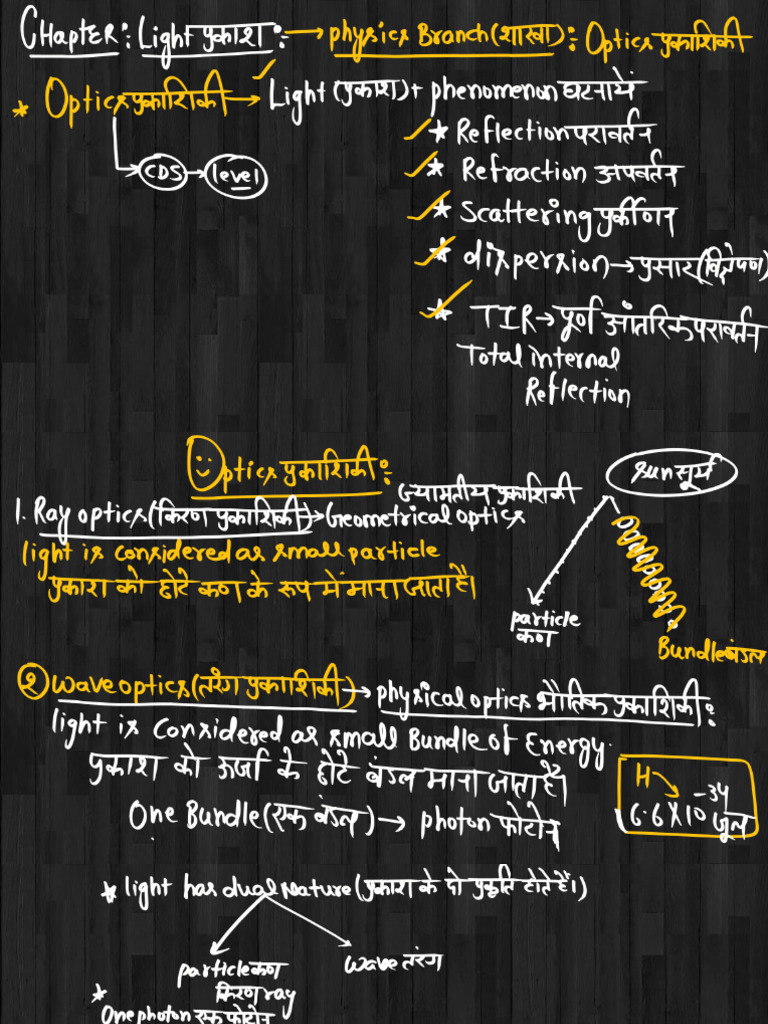 CHapter: Light प्रकाश :→ physics Branch(शाखा): Optics प्रकाशिकी
* Optics प्रकाशिकी → Light (प्रकाश) + phenomenon घटनायें
* Reflection परावर्तन
CDS → level
* Refraction अपवर्तन
* Scattering प्रर्कीणन
* dispersion → प्रसार (विक्षेपण)
* TIR → पूर्ण आंतरिक परावर्तन
Total internal
Reflection
Optics प्रकाशिकी:
sun सूर्य
ज्यामतीय प्रकाशिकी
1. Ray optics (किरण प्रकाशिकी) → Geometrical optics
light is considered as small particle
प्रकाश को छोटे कण के रूप में माना जाता है।
particle
कण
Bundle बंडल
2 wave optics (तरंग प्रकाशिकी) → physical optics भौतिक प्रकाशिकी:
light is considered as small Bundle of Energy.
प्रकाश को ऊर्जा के छोटे बंडल माना जाता है।
H
6.6 X 10 -34 जूल
One Bundle (एक बंडल) → photon फोटोन
* light has dual Nature (प्रकाश के दो प्रकृति होते हैं।)
particle कण
wave तरंग
किरण ray
* One photon एक फोटोन